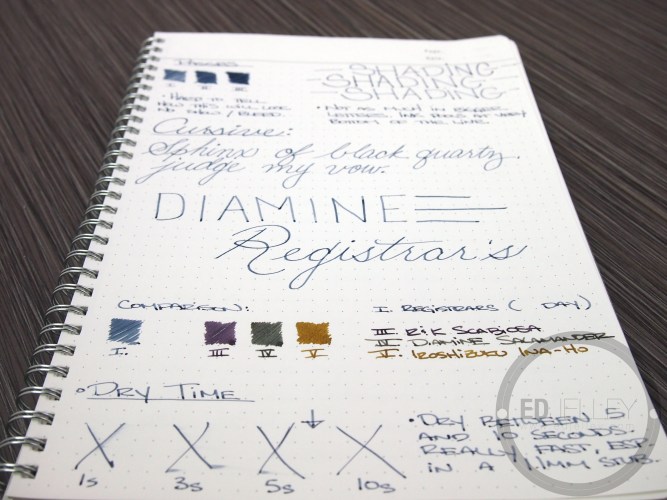 SHADING
SHADING
SHADING
I II III
• HARD TO TELL
HOW THIS WILL LOOK
• NOT AS MUCH IN BIGGER
LETTERS. INK POOLS AT VERY
BOTTOM OF THE LINE.
Cursive:
Sphinx of black quartz.
judge my vow.
DIAMINE
Registrar's
COMPARISON:
I. REGISTRARS ( DAY)
III. R&K SCABIOSA
IV. DIAMINE SALAMANDER
V. IROSHIZUKU INA-HO
I. III IV V
• DRY TIME
1s 3s 5s 10s
• DRY BETWEEN 5
AND 10 SECONDS.
REALLY FAST, ESP.
IN A 1.1MM STUB.
EDJELLEY